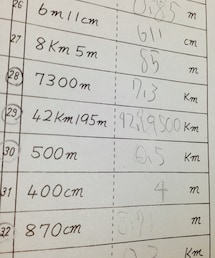 26 6m11cm 611 cm
27 8Km5m 85 m
28 7300m 7.3 Km
29 42Km195m Km
30 500m 0.5 Km
31 400cm 4 m
32 870cm m
Km